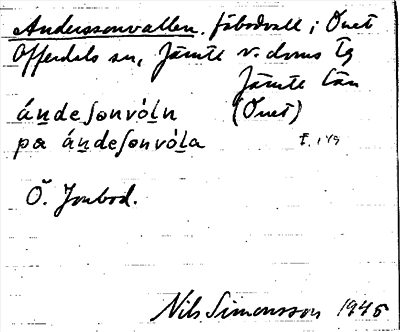 Anderssonvallen, fäbodvall i Önet
Offerdals sn, Jämtl v. doms tg
Jämtl län
ándeʃonvóln (Önet)
pa ándeʃonvóla F. 149
Ö. Jonbod.
Nils Simonsson 1945